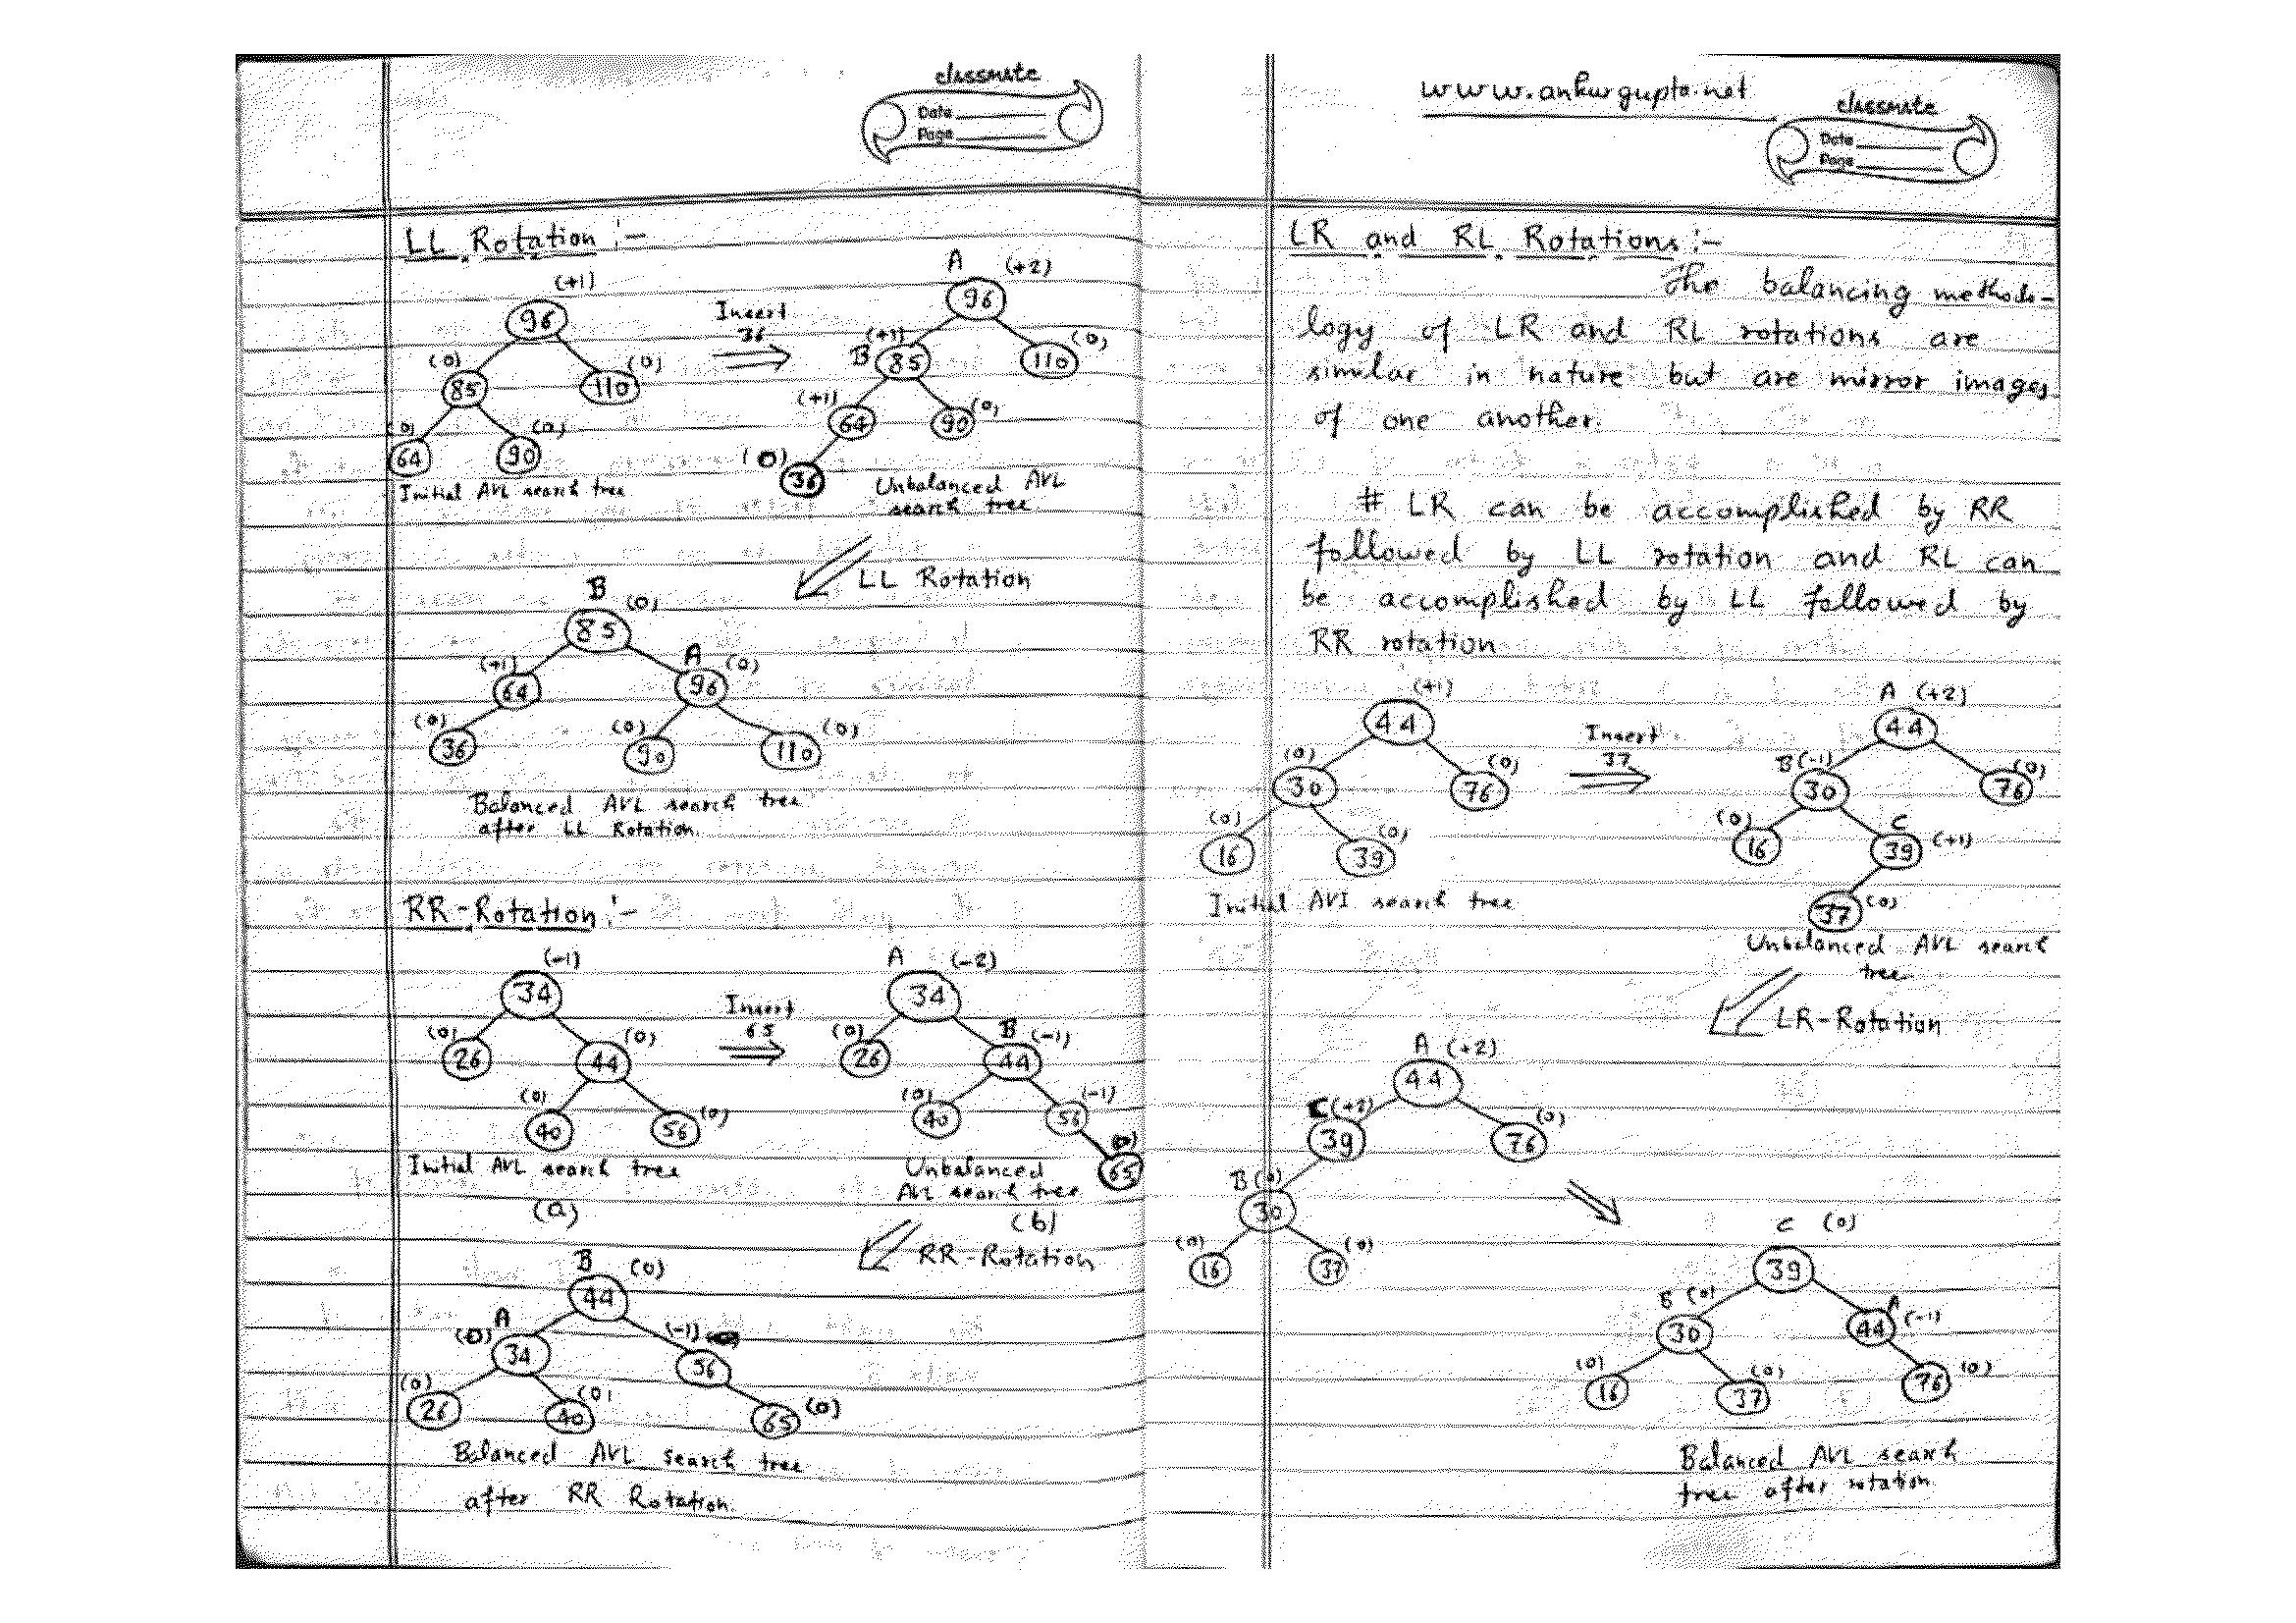 classmate
Date
Page
LL Rotation :-
(+1)
96
(0)
85
(0)
110
(0)
64
(0)
90
Initial AVL search tree
Insert
36
A (+2)
96
(+1)
B 85
(0)
110
(+1)
64
(0)
90
(0)
36
Unbalanced AVL
search tree
LL Rotation
B (0)
85
(+1)
64
A (0)
96
(0)
36
(0)
90
(0)
110
Balanced AVL search tree
after LL Rotation.
RR-Rotation :-
(-1)
34
(0)
26
(0)
44
(0)
40
(0)
56
Initial AVL search tree
(a)
Insert
65
A (-2)
34
(0)
26
B (-1)
44
(0)
40
(-1)
56
(0)
65
Unbalanced
AVL search tree
(b)
RR-Rotation
B (0)
44
A
(0)
34
(-1)
56
(0)
26
(0)
40
(0)
65
Balanced AVL search tree
after RR Rotation.
www.ankurgupta.net
classmate
Date
Page
LR and RL Rotations :-
The balancing methodo-
logy of LR and RL rotations are
similar in nature but are mirror images
of one another.
# LR can be accomplished by RR
followed by LL rotation and RL can
be accomplished by LL followed by
RR rotation
(+1)
44
(0)
30
(0)
76
(0)
16
(0)
39
Initial AVl search tree
Insert
37
A (+2)
44
B (-1)
30
(0)
76
(0)
16
C
39 (+1)
37 (0)
Unbalanced AVL search
tree
LR-Rotation
A (+2)
44
C (+2)
39
(0)
76
B (0)
30
(0)
16
(0)
37
C (0)
39
B (0)
30
A
44 (-1)
(0)
16
(0)
37
76 (0)
Balanced AVL search
tree after rotation